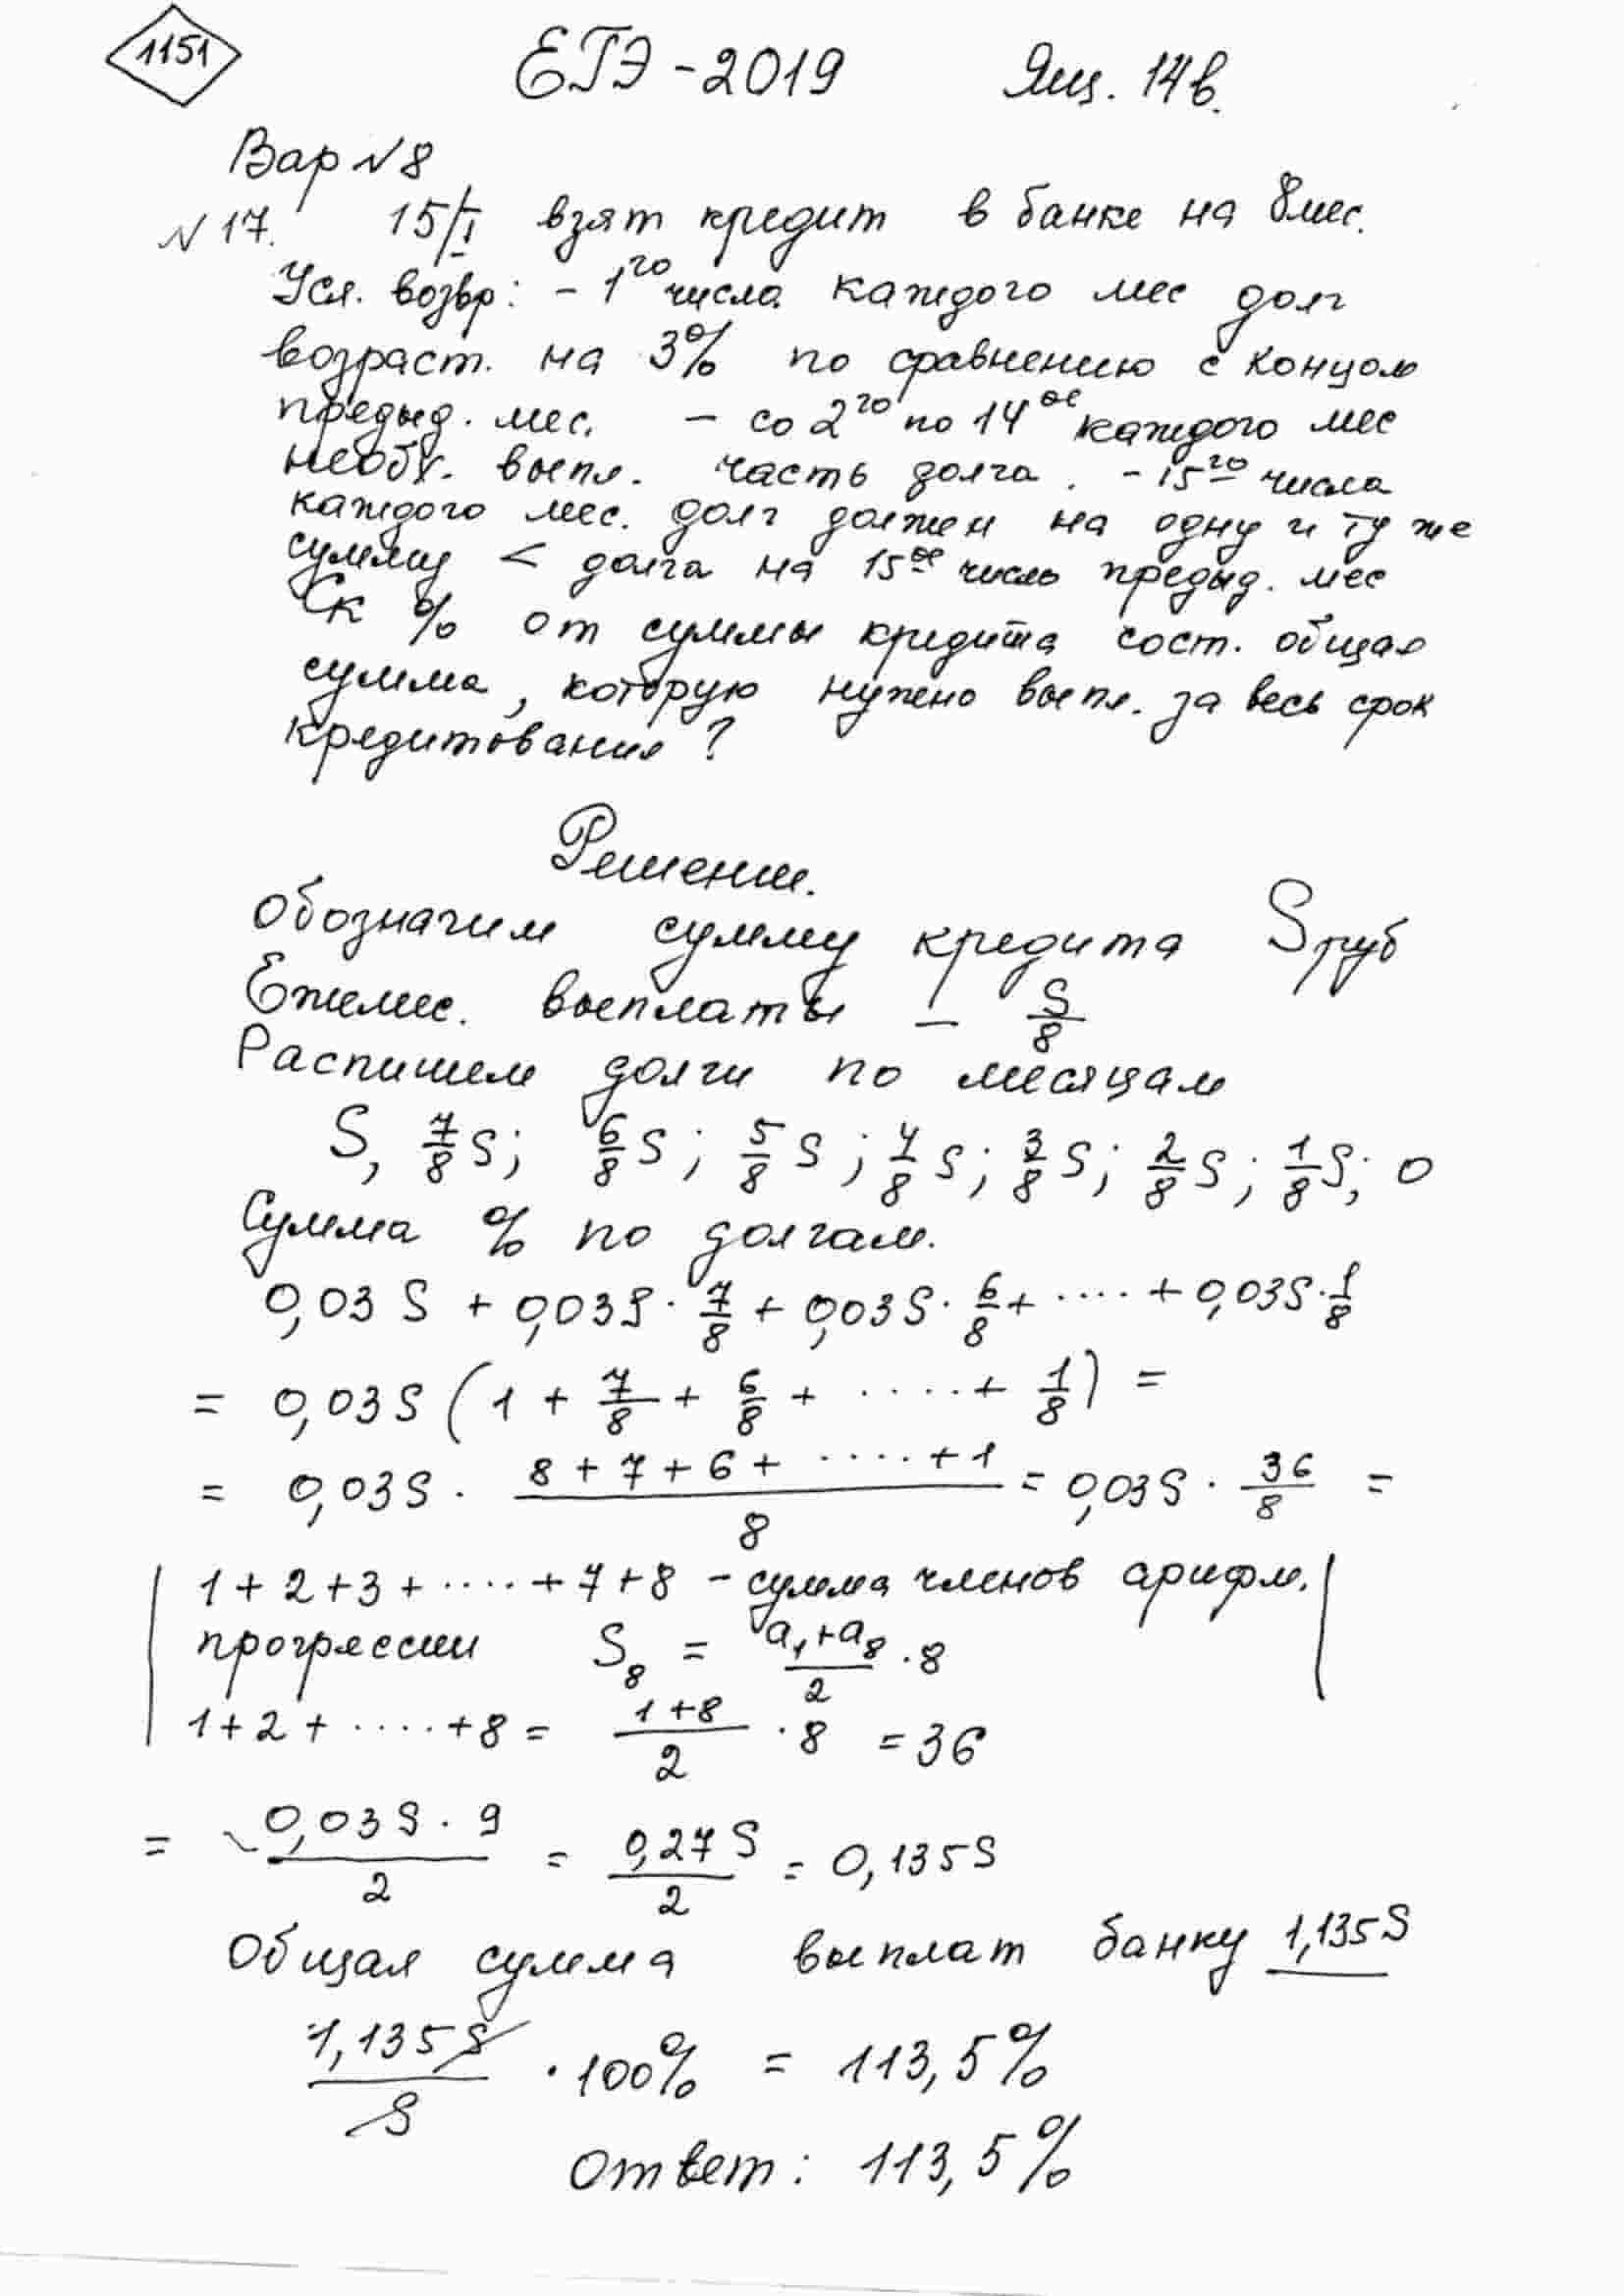 1151
ЕГЭ - 2019 Ящ. 14в.
Вар №8
№ 17. 15/I взят кредит в банке на 8 мес.
Усл. возвр: - 1го числа каждого мес долг
возраст. на 3% по сравнению с концом
предыд. мес. - со 2го по 14ое каждого мес
необх. выпл. часть долга. - 15го числа
каждого мес. долг должен на одну и ту же
сумму < долга на 15ое число предыд. мес
Ск % от суммы кредита сост. общая
сумма, которую нужно выпл. за весь срок
кредитования?
Решение.
Обозначим сумму кредита S руб
Ежемес. выплаты — S/8
Распишем долги по месяцам
S, 7/8 S; 6/8 S; 5/8 S; 4/8 S; 3/8 S; 2/8 S; 1/8 S; 0
Сумма % по долгам.
0,03 S + 0,03S · 7/8 + 0,03S · 6/8 + ···· + 0,03S · 1/8
= 0,03S (1 + 7/8 + 6/8 + ····· + 1/8) =
= 0,03S · (8 + 7 + 6 + ····· + 1)/8 = 0,03S · 36/8 =
1 + 2 + 3 + ····· + 7 + 8 - сумма членов арифм.
прогрессии S₈ = (a₁ + a₈)/2 · 8
1 + 2 + ····· + 8 = (1 + 8)/2 · 8 = 36
= (0,03S · 9)/2 = 0,27S/2 = 0,135S
Общая сумма выплат банку 1,135S
1,135S/S · 100% = 113,5%
Ответ: 113,5%